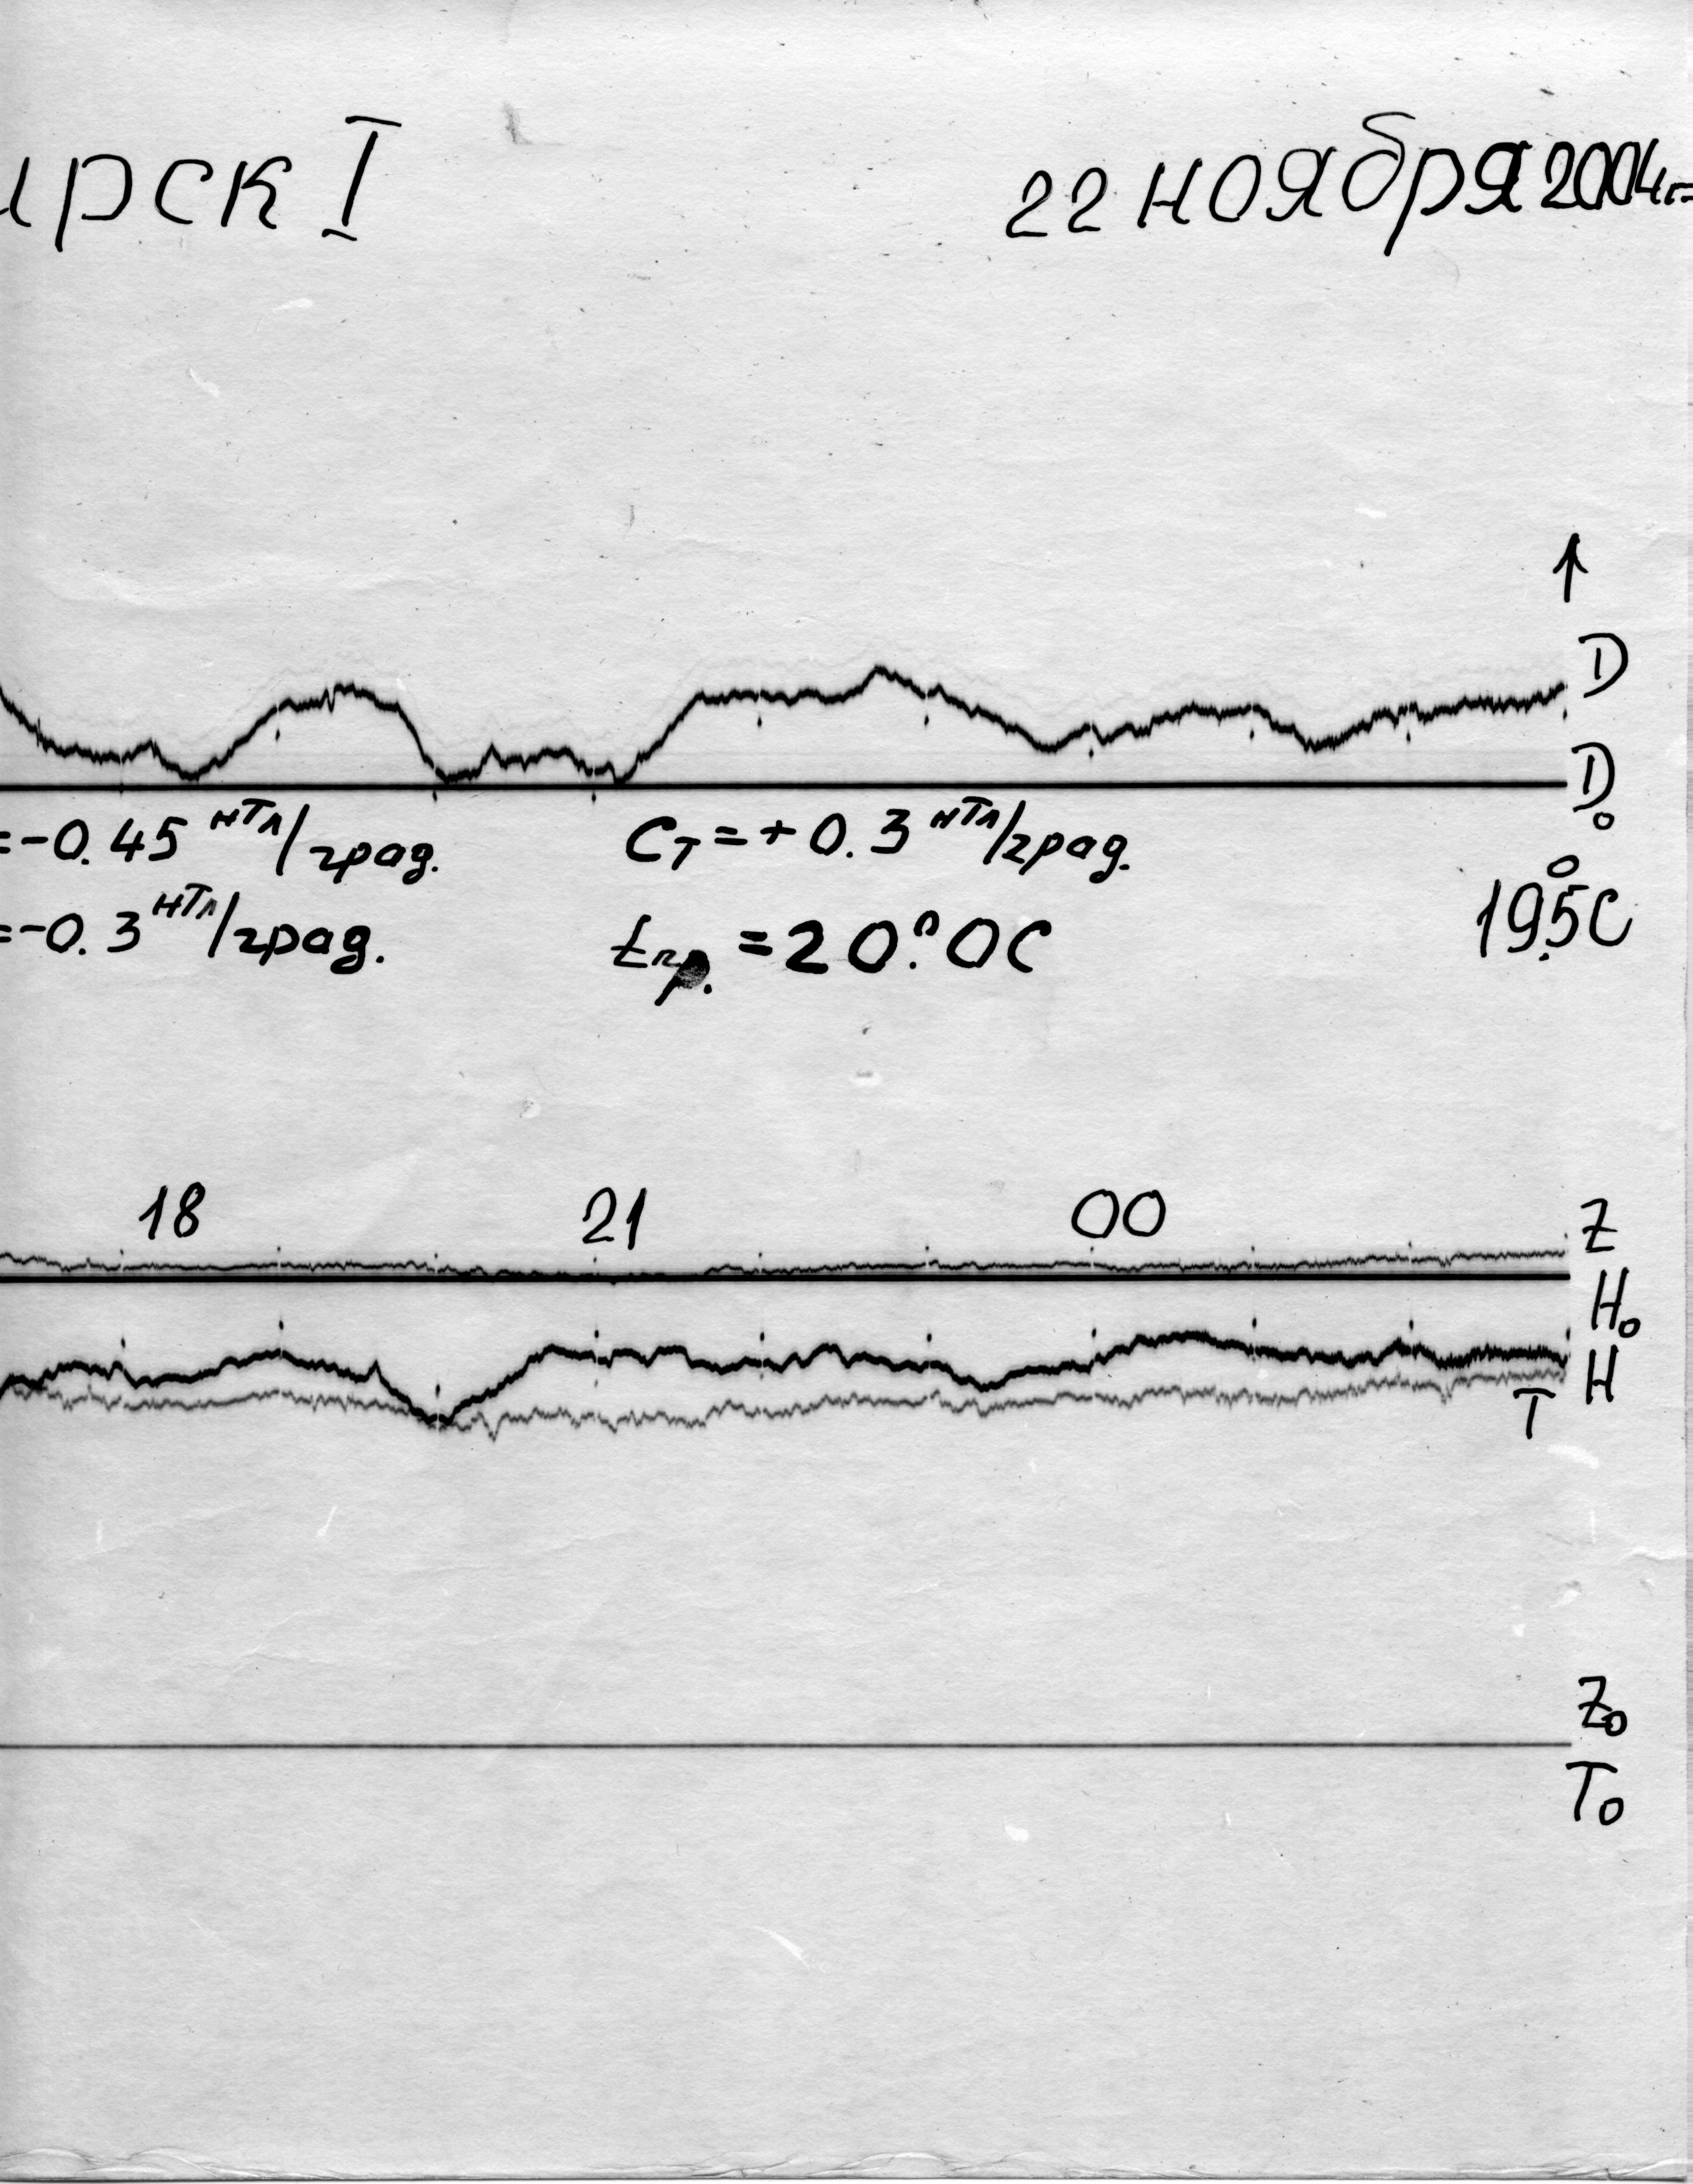 ирск I 22 ноября 2004г.
↑
D
D₀
=-0.45 нТл/град. Cт=+0.3 нТл/град.
=-0.3 нТл/град. tпр.=20.°0С 19.°5С
18 21 00 Z
H₀
H
T
Z₀
T₀